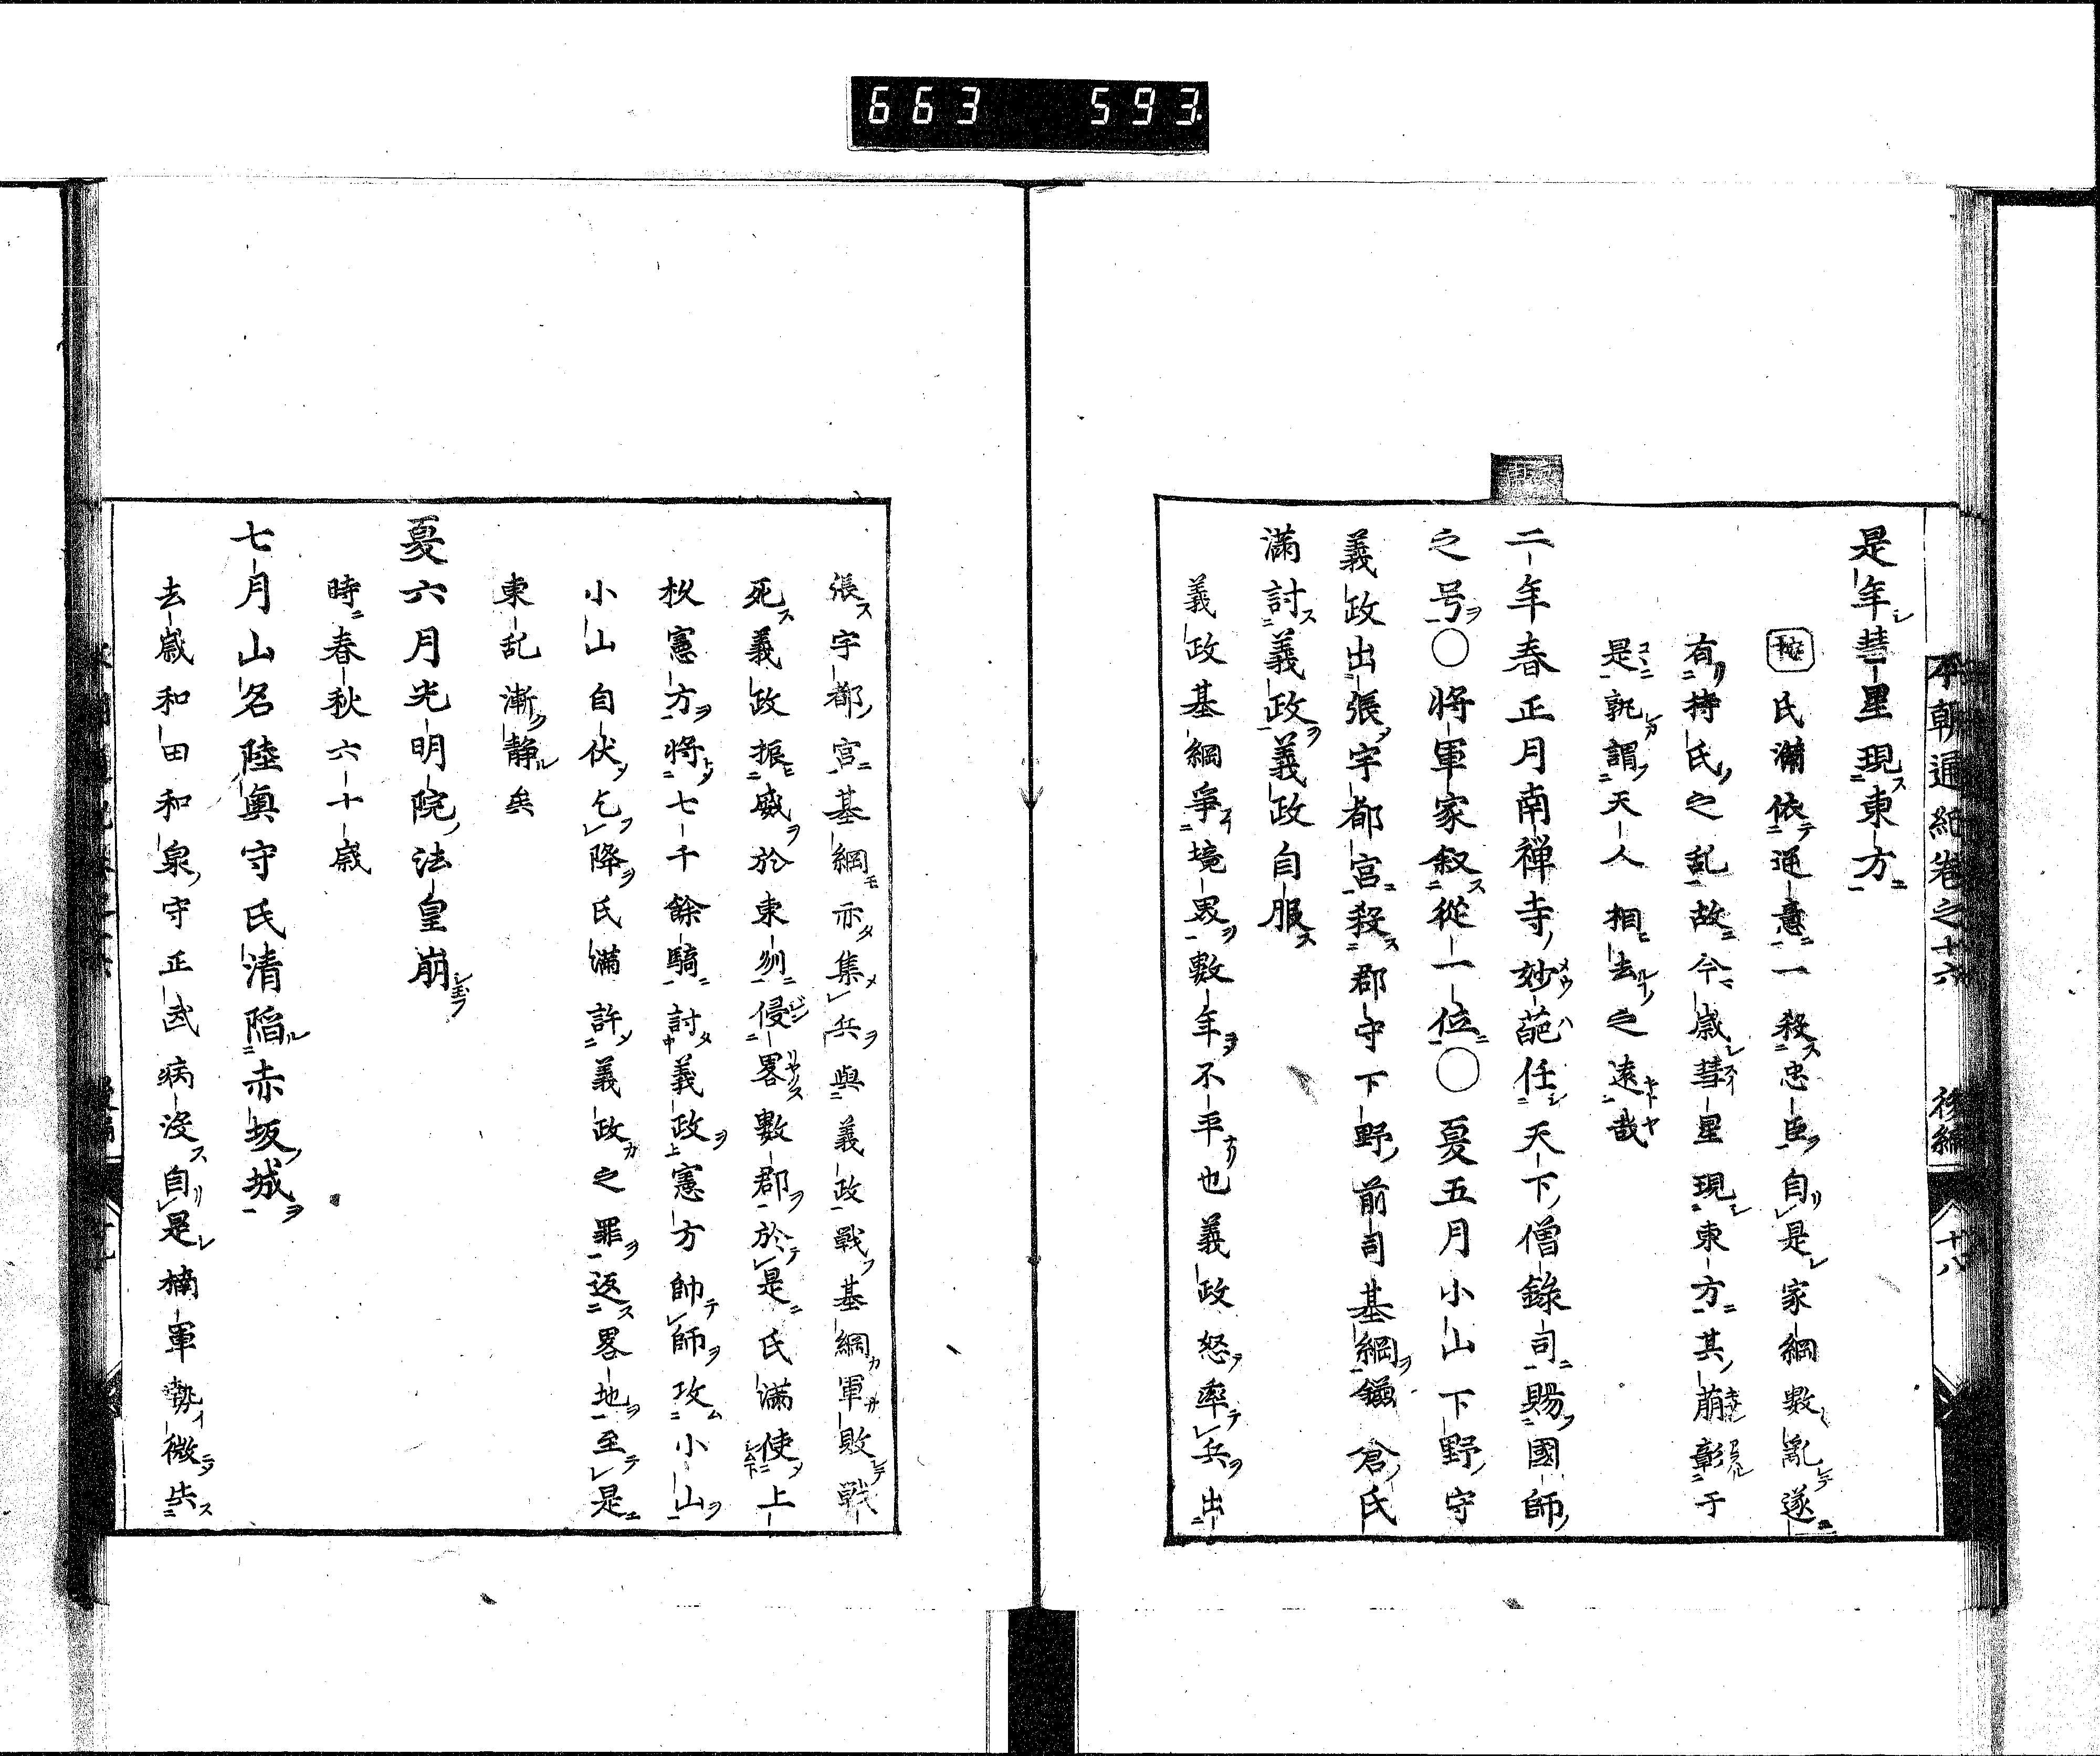 663 593
本朝通紀卷之十六 後編 十八
是年彗星現東方
按氏滿依逆意一殺忠臣自是家綱數亂遂
有持氏之乱故今歳彗星現東方其萠彰于
是孰謂天人相去之遠哉
二年春正月南禅寺妙葩任天下僧錄司賜國師
之号〇将軍家叙從一位〇夏五月小山下野守
義政出張宇都宮殺郡守下野前司基綱鎌倉氏
滿討義政義政自服
義政基綱爭境界數年不平也義政怒率兵出
張宇都宮基綱亦集兵與義政戰基綱軍敗戰
死義政振威於東州侵畧數郡於是氏滿使上
杦憲方将七千餘騎討義政憲方帥師攻小山
小山自伏乞降氏滿許義政之罪返畧地至是
東乱漸静矣
夏六月光明院法皇崩
時春秋六十歳
七月山名陸奥守氏清陷赤坂城
去歳和田和泉守正武病沒自是楠軍勢微矣